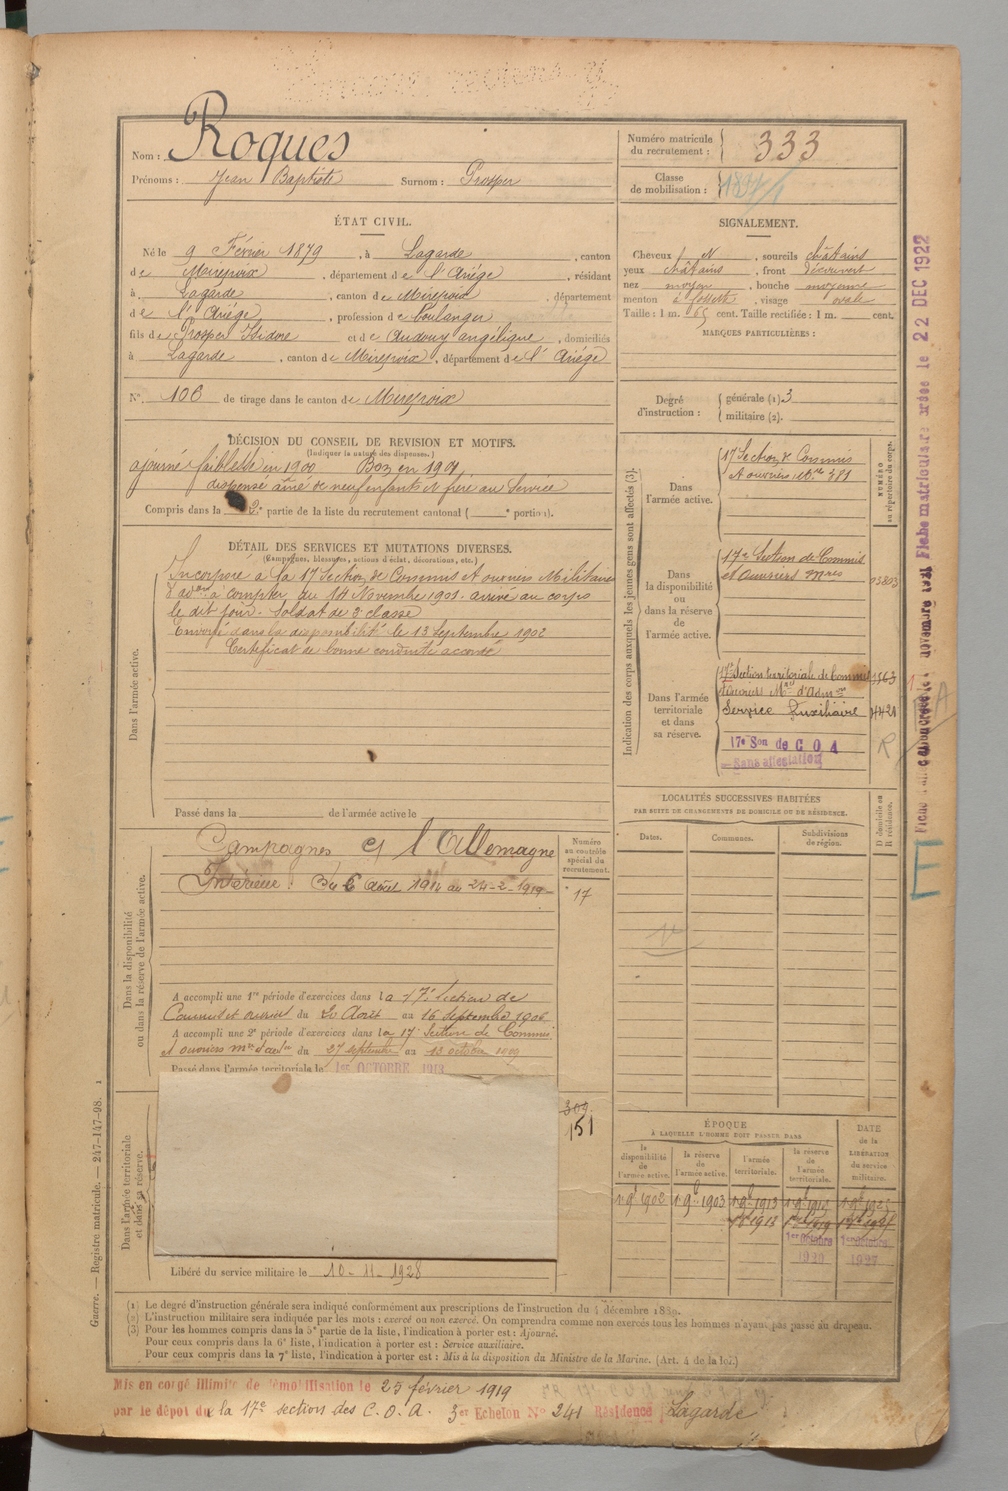 Nom : Roques
Prénoms : Jean Baptiste Surnom : Prosper
Numéro matricule du recrutement : 333
Classe de mobilisation :
ÉTAT CIVIL.
Né le 9 Février 1879, à Lagarde, canton
de Mirepoix, département de l'Ariége, résidant
à Lagarde, canton de Mirepoix, département
de l'Ariége, profession de boulanger
fils de Prosper Isidore et de Audouy angélique, domiciliés
à Lagarde, canton de Mirepoix, département de l'Ariége
N°. 106 de tirage dans le canton de Mirepoix
SIGNALEMENT.
Cheveux N, sourcils châtains
yeux châtains, front découvert
nez moyen, bouche moyenne
menton à fossette, visage ovale
Taille : 1 m. 65 cent. Taille rectifiée : 1 m. cent.
MARQUES PARTICULIÈRES :
Degré d'instruction : générale (1) 3
militaire (2).
DÉCISION DU CONSEIL DE REVISION ET MOTIFS.
(Indiquer la nature des dispenses.)
ajourné faiblesse en 1900 Bon en 1901
dispensé aîné de neuf enfants et frère au Service
Compris dans la 2e partie de la liste du recrutement cantonal ( e portion).
DÉTAIL DES SERVICES ET MUTATIONS DIVERSES.
(Campagnes, blessures, actions d'éclat, décorations, etc.)
Dans l'armée active.
Incorporé à la 17 Section de Commis et ouvriers Militaires
d'adon à compter du 14 Novembre 1901. arrivé au corps
le dit jour. Soldat de 2e classe
Envoyé dans la disponibilité le 13 Septembre 1902
Certificat de bonne conduite accordé
Passé dans la de l'armée active le
Indication des corps auxquels les jeunes gens sont affectés (3).
NUMÉRO au répertoire du corps.
Dans l'armée active.
17 Section de Commis
et ouvriers Mres 381
Dans la disponibilité ou dans la réserve de l'armée active.
17e Section de Commis
et Ouvriers Mres
Dans l'armée territoriale et dans sa réserve.
17e Section territoriale de Commis
Service Auxiliaire
17e Son de C O A
Sans affectation
Dans la disponibilité ou dans la réserve de l'armée active.
Campagnes c/ l'Allemagne
Intérieur : Du 6 août 1914 au 24-2-1919
Numéro au contrôle spécial du recrutement.
17
A accompli une 1re période d'exercices dans la 17e Section de
Commis et ouvriers du 20 Août au 16 septembre 1906
A accompli une 2e période d'exercices dans la 17e Section de Commis
et ouvriers mres d'adon du 27 septembre au 13 octobre 1909
Passé dans l'armée territoriale le 1er OCTOBRE 1913
Dans l'armée territoriale et dans sa réserve.
309
151
Libéré du service militaire le 10-11-1928
LOCALITÉS SUCCESSIVES HABITÉES
PAR SUITE DE CHANGEMENTS DE DOMICILE OU DE RÉSIDENCE.
Dates. Communes. Subdivisions de région. D domicile ou R résidence.
ÉPOQUE
À LAQUELLE L'HOMME DOIT PASSER DANS
la disponibilité de l'armée active. la réserve de l'armée active. l'armée territoriale. la réserve de l'armée territoriale. DATE de la LIBÉRATION du service militaire.
1 9b 1902 1 9b 1903 1 9b 1913
1er octobre 1er octobre
1920 1927
(1) Le degré d'instruction générale sera indiqué conformément aux prescriptions de l'instruction du 4 décembre 1889.
(2) L'instruction militaire sera indiquée par les mots : exercé ou non exercé. On comprendra comme non exercés tous les hommes n'ayant pas passé au drapeau.
(3) Pour les hommes compris dans la 5e partie de la liste, l'indication à porter est : Ajourné.
Pour ceux compris dans la 6e liste, l'indication à porter est : Service auxiliaire.
Pour ceux compris dans la 7e liste, l'indication à porter est : Mis à la disposition du Ministre de la Marine. (Art. 4 de la loi.)
Mis en congé illimité de démobilisation le 25 février 1919
par le dépôt de la 17e section des C.O.A. 3er Echelon N° 241 Résidence Lagarde
Guerre. — Registre matricule. — 247-147-98. 1
Fiche matriculaire créée le 22 DEC 1922